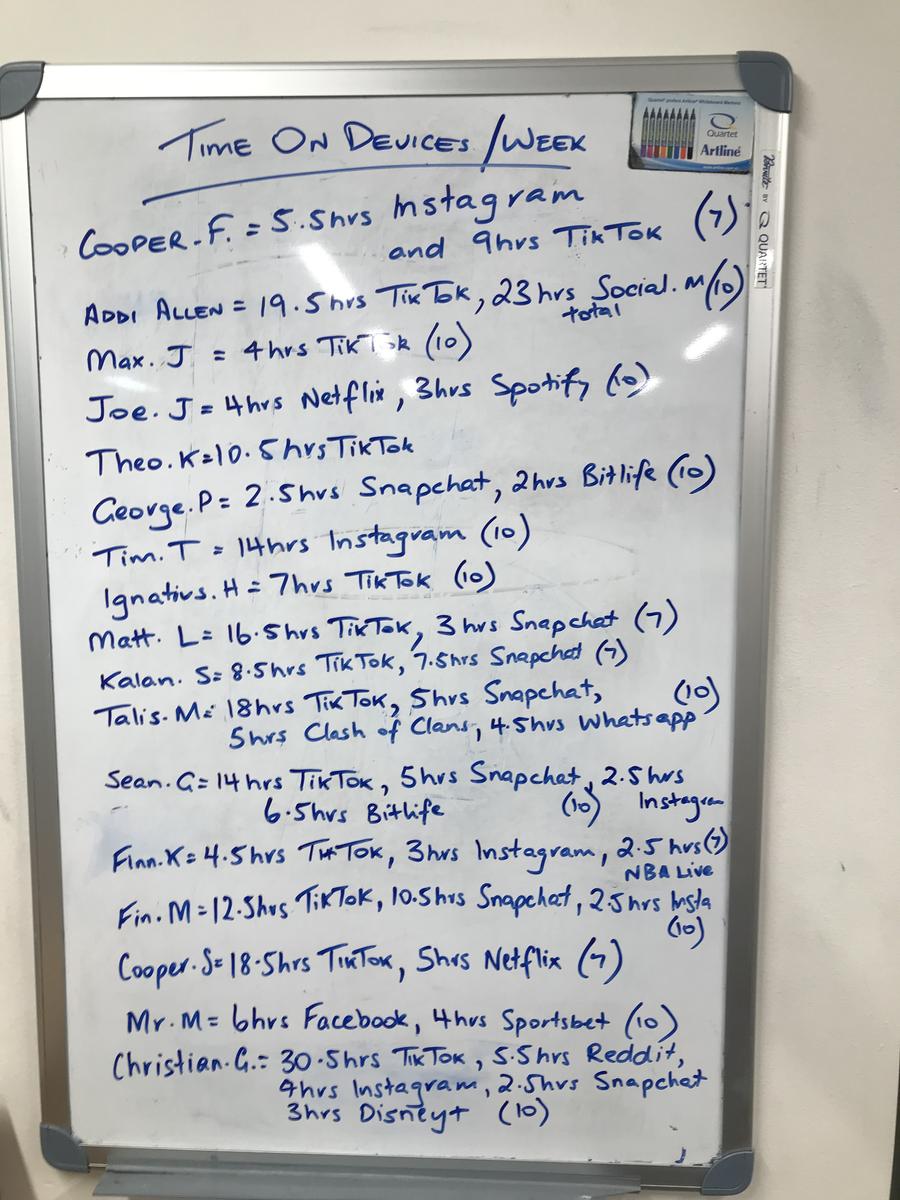 TIME ON DEVICES/WEEK
Quartet
Artline
QUARTET
COOPER.F. = 5.5hrs Instagram
and 9hrs TikTok (7)
ADDI ALLEN = 19.5hrs TikTok, 23hrs Social.M (10)
total
Max. J = 4hrs TikTok (10)
Joe. J = 4hrs Netflix, 3hrs Spotify (10)
Theo.K=10.5hrs TikTok
George.P= 2.5hrs Snapchat, 2hrs Bitlife (10)
Tim.T = 14hrs Instagram (10)
Ignativs.H = 7hrs TikTok (10)
Matt. L= 16.5hrs TikTok, 3hrs Snapchat (7)
Kalan. S= 8.5hrs TikTok, 7.5hrs Snapchat (7)
Talis.M= 18hrs TikTok, 5hrs Snapchat, (10)
5hrs Clash of Clans, 4.5hrs Whatsapp
Sean.G=14hrs TikTok, 5hrs Snapchat, 2.5hrs
6.5hrs Bitlife (10) Instagram
Finn.K= 4.5hrs TikTok, 3hrs Instagram, 2.5hrs (7)
NBA Live
Fin.M=12.5hrs TikTok, 10.5hrs Snapchat, 2.5hrs Insta
(10)
Cooper.S= 18.5hrs TikTok, 5hrs Netflix (7)
Mr.M= 6hrs Facebook, 4hrs Sportsbet (10)
Christian.G.= 30.5hrs TikTok, 5.5hrs Reddit,
4hrs Instagram, 2.5hrs Snapchat
3hrs Disney+ (10)